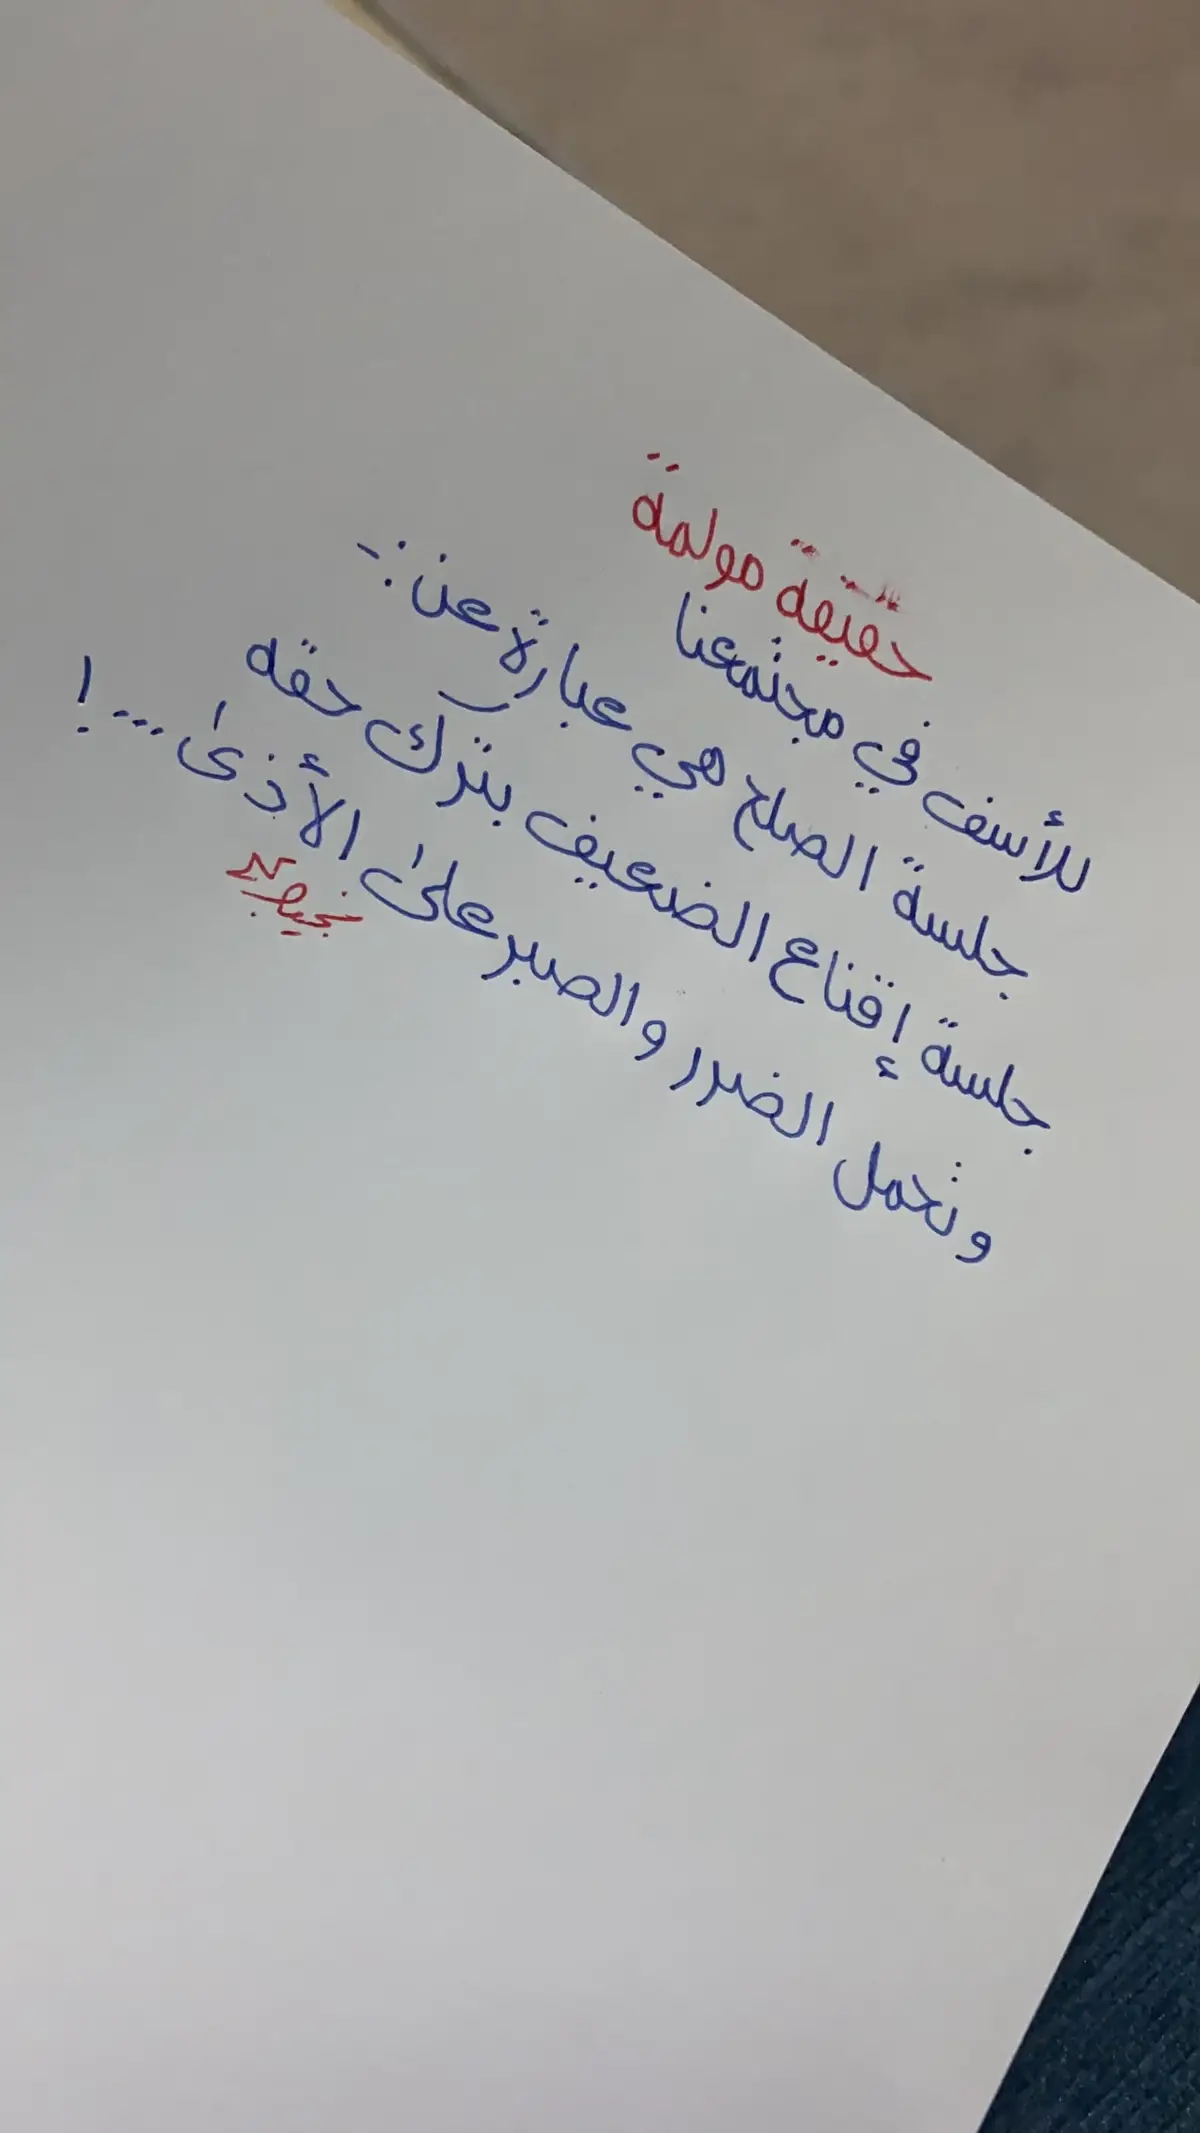 حقيقة مولمة
للأسف في مجتمعنا
جلسة الصلح هي عبارة عن :-
جلسة إقناع الضعيف بترك حقه
وتحمل الضرر والصبر على الأذى...!